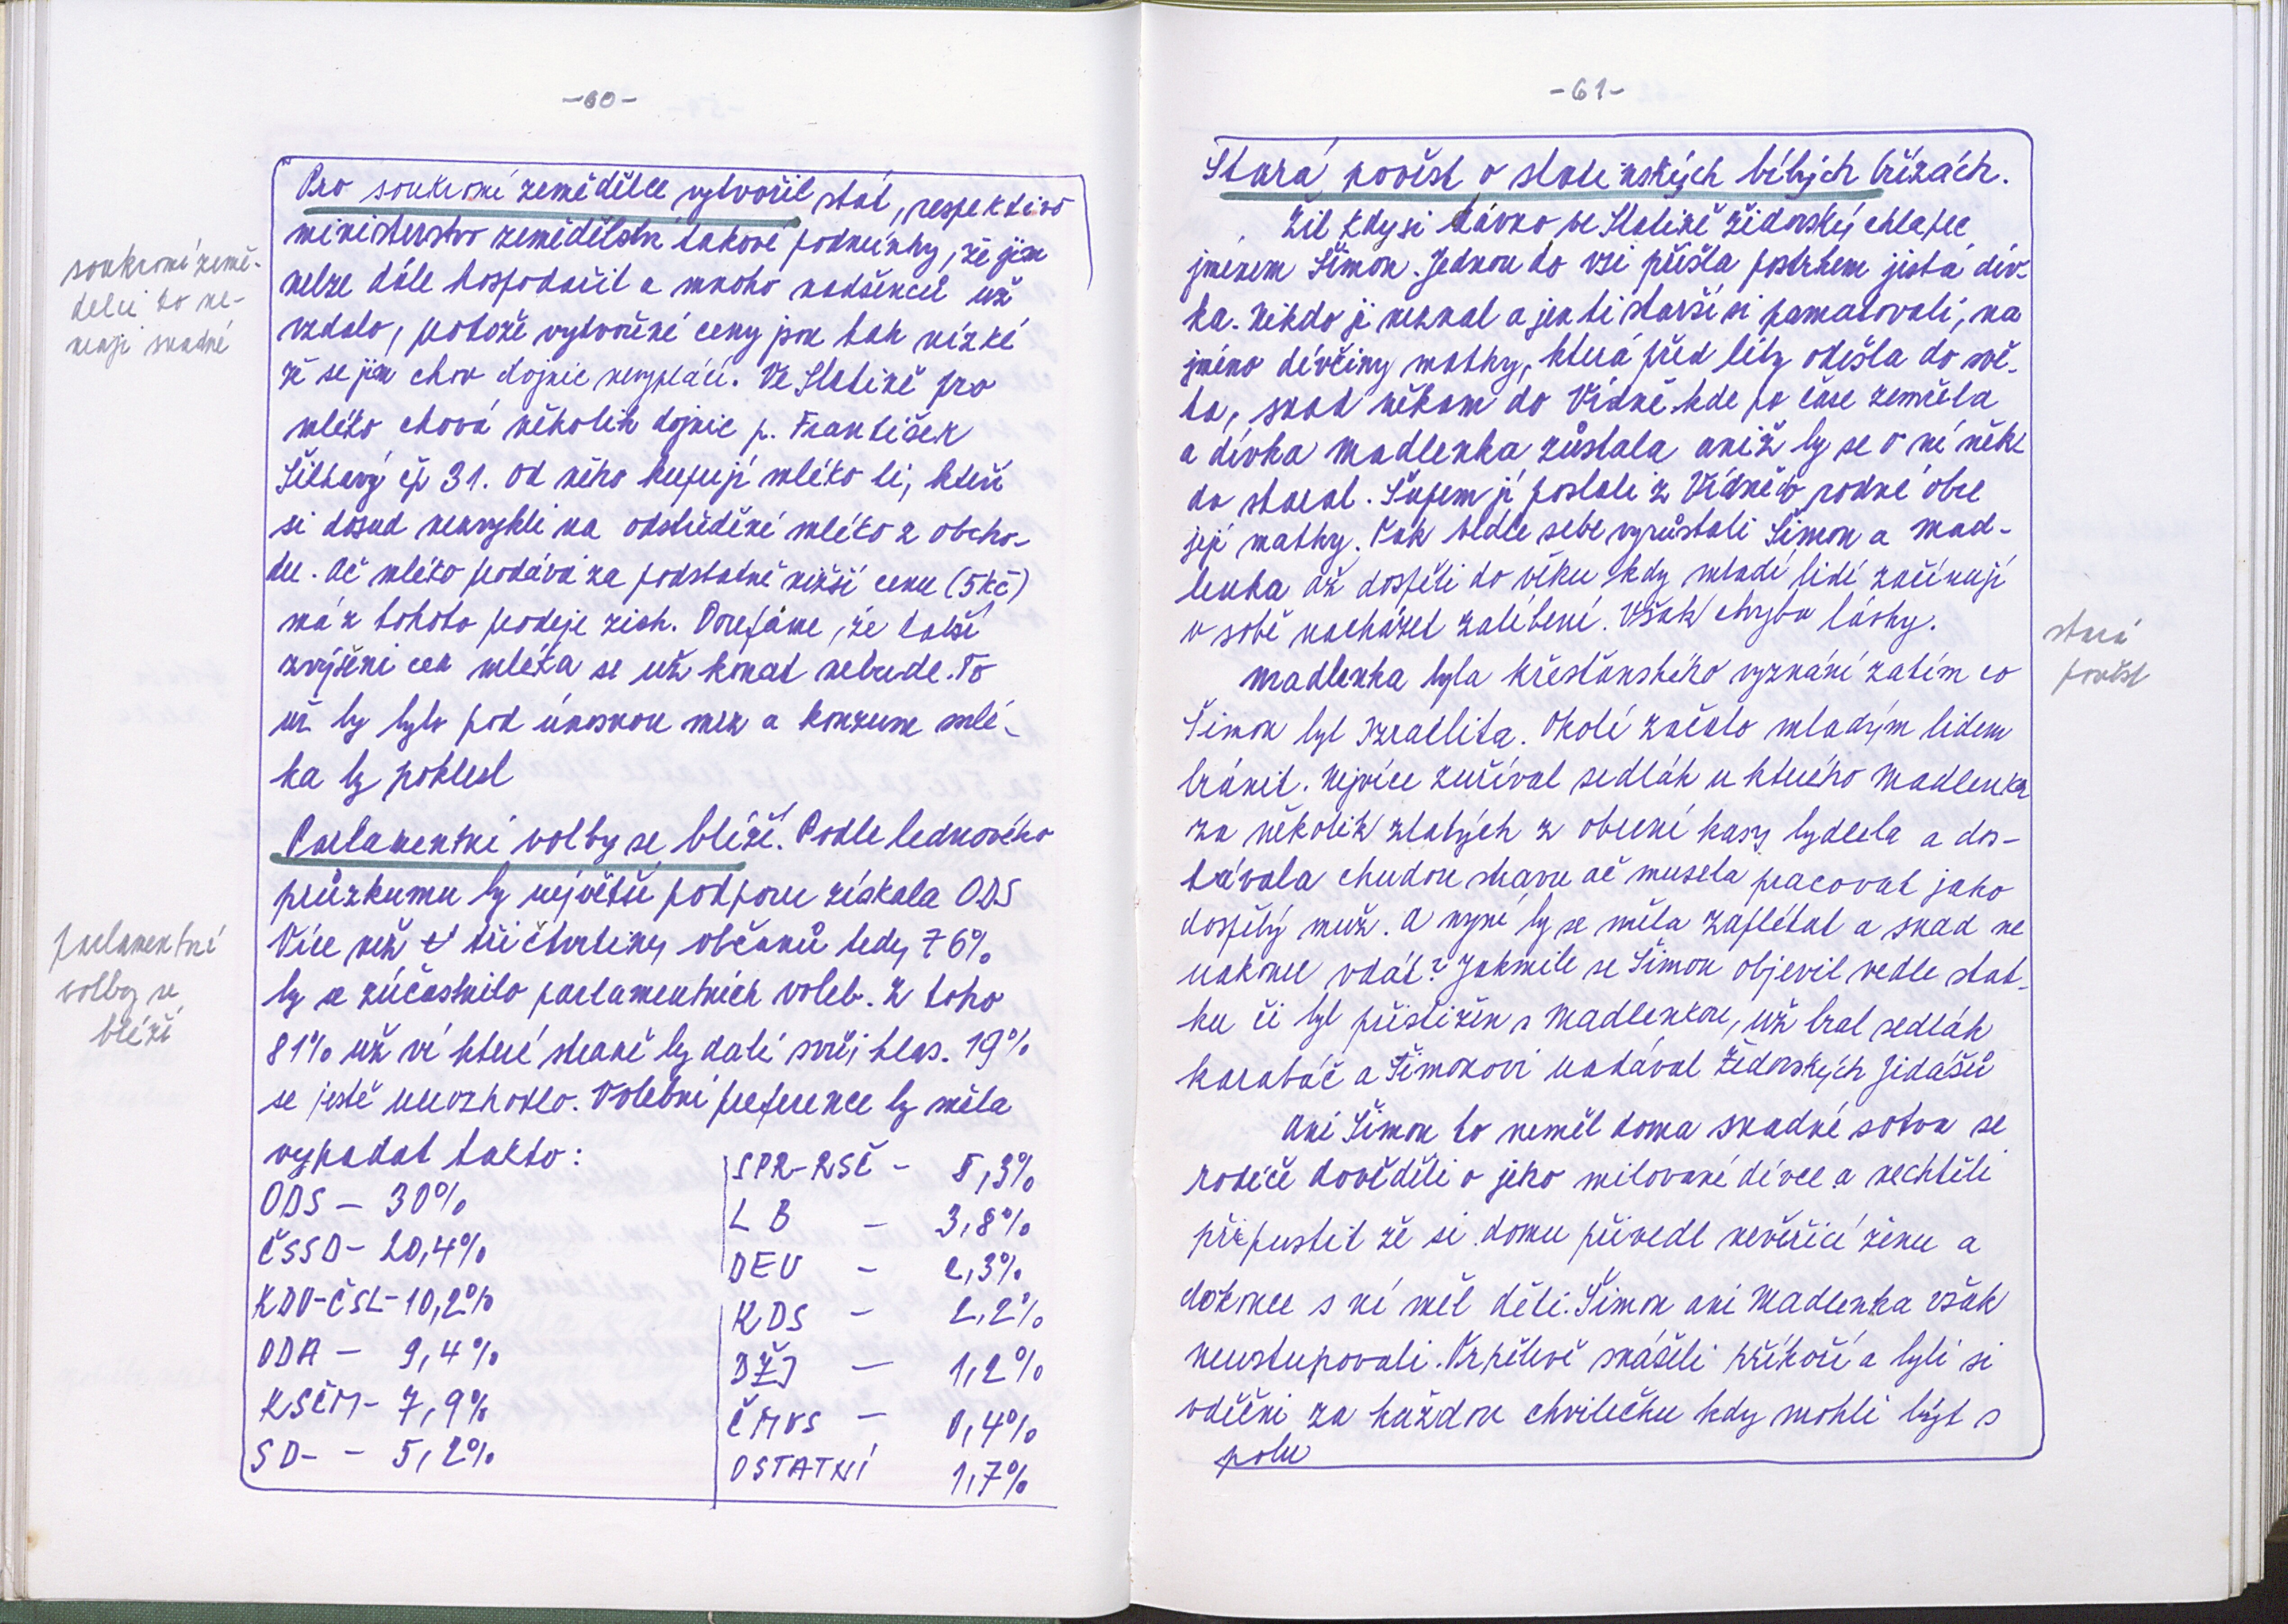 -60-
Pro soukromé zemědělce vytvořil stát, respektivě
ministerstvo zemědělství takové podmínky, že jim
nelze dále hospodařit a mnoho nadšenců už
vzdalo, protože vytvořené ceny jsou tak nízké
že se jim chov dojnic nevyplácí. Ve Slatině pro
mléko chová několik dojnic p. František
Šiktavý čp 31. Od něho kupují mléko ti, kteří
si dosud nenavykli na odstředěné mléko z obcho-
du. Ač mléko prodává za podstatně nižší cenu (5 Kč)
má z tohoto prodeje zisk. Doufáme, že další
zvýšení cen mléka se už konat nebude. To
už by bylo pod únosnou mez a konzum mlé-
ka by poklesl
soukromí země-
dělci to ne-
mají snadné
Parlamentní volby se blíží. Podle lednového
průzkumu by největší podporu získala ODS
Více než tři čtvrtiny občanů tedy 76%
by se zúčastnilo parlamentních voleb. Z toho
81% už ví které straně by dali svůj hlas. 19%
se ještě nerozhodlo. Volební preference by měla
vypadat takto:
parlamentní
volby se
blíží
ODS - 30%
ČSSD - 20,4%
KDU-ČSL - 10,2%
ODA - 9,4%
KSČM - 7,9%
SD - - 5,2%
SPR-RSČ - 5,3%
LB - 3,8%
DEU - 2,3%
KDS - 2,2%
DŽJ - 1,2%
ČMUS - 0,4%
OSTATNÍ 1,7%
-61-
Stará pověst o slatinských bílých břízách.
Žil kdysi dávno ve Slatině židovský chlapec
jménem Šimon. Jednou do vsi přišla postrkem jistá dív-
ka. Nikdo ji neznal a jen ti starší si pamatovali, na
jméno dívčiny matky, která před léty odešla do svě-
ta, snad někam do Vídně kde po čase zemřela
a dívka Madlenka zůstala aniž by se o ni něk
do staral. Šupem ji poslali z Vídně do rodné obce
její matky. Pak vedle sebe vyrůstali Šimon a Mad-
lenka až dospěli do věku kdy mladí lidí začínají
v sobě nacházet zalíbení. Však chyba lásky.
Madlenka byla křesťanského vyznání zatím co
Šimon byl Izraelita. Okolí začalo mladým lidem
bránit. Nejvíce zuřival sedlák u kterého Madlenka
za několik zlatých z obecní kasy bydlela a dos-
távala chudou stravu ač musela pracovat jako
dospělý muž. A nyní by se měla zaplétat a snad ne
nakonec vdát? Jakmile se Šimon objevil vedle stat-
ku či byl přistižen s Madlenkou, už bral sedlák
karabáč a Šimonovi nadával židovských Jidášů
Ani Šimon to neměl doma snadné sotva se
rodiče dověděli o jeho milované dívce a nechtěli
připustit že si domu přivedl nevěřící ženu a
dokonce s ní měl děti. Šimon ani Madlenka však
neustupovali. Trpělivě snášeli příkoří a byli si
vděčni za každou chvilečku kdy mohli být s
polu
stará
pověst